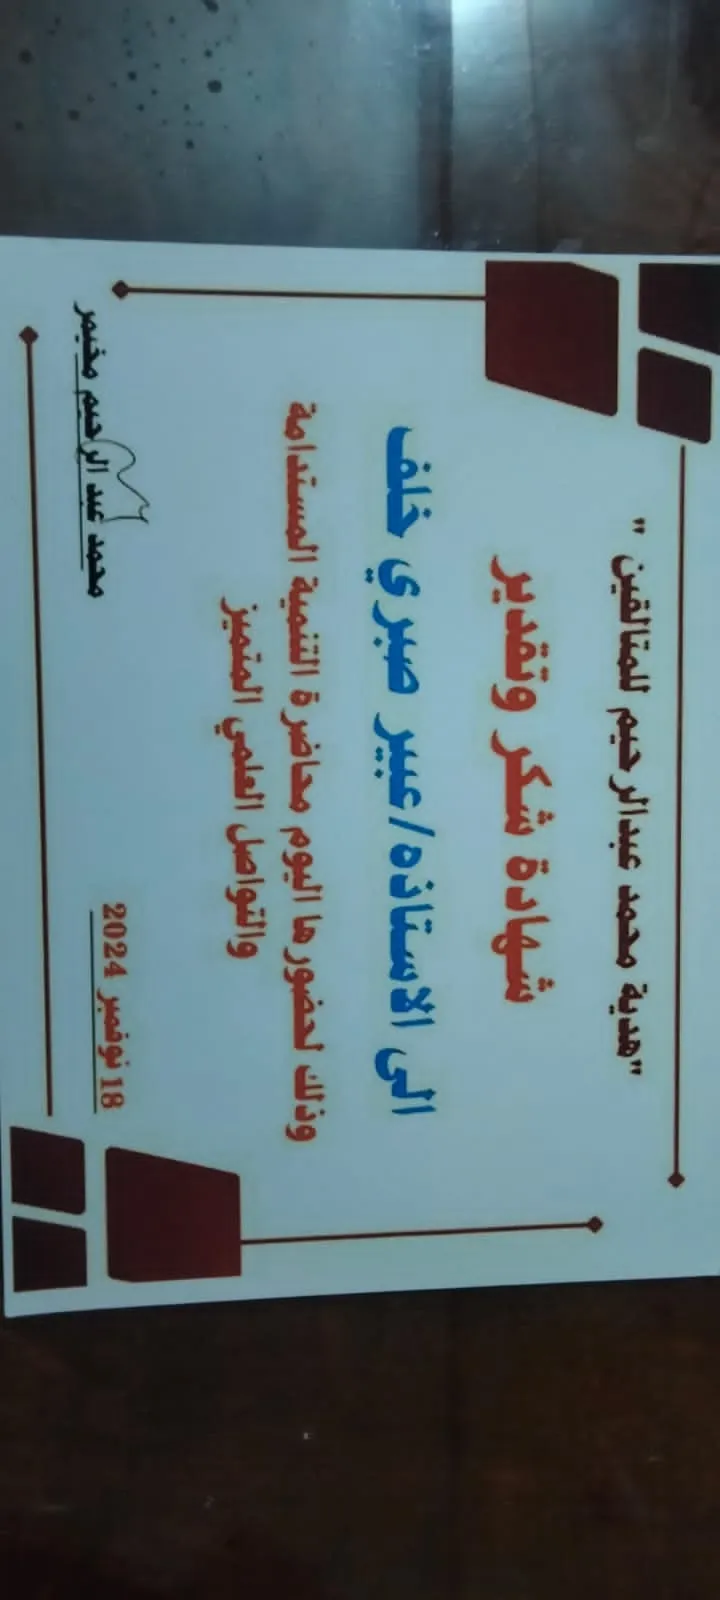 "هدية محمد عبدالرحيم للمتالقين "
شهادة شكر وتقدير
الى الاستاذه/عبير صبري خلف
وذلك لحضورها اليوم محاضرة التنمية المستدامة
والتواصل العلمي المتميز
18 نوفمبر 2024
محمد عبد الرحيم مخيمر